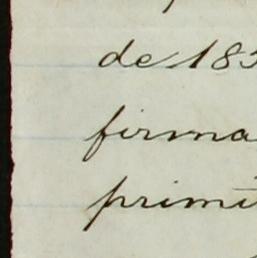 de 185
firma
primi